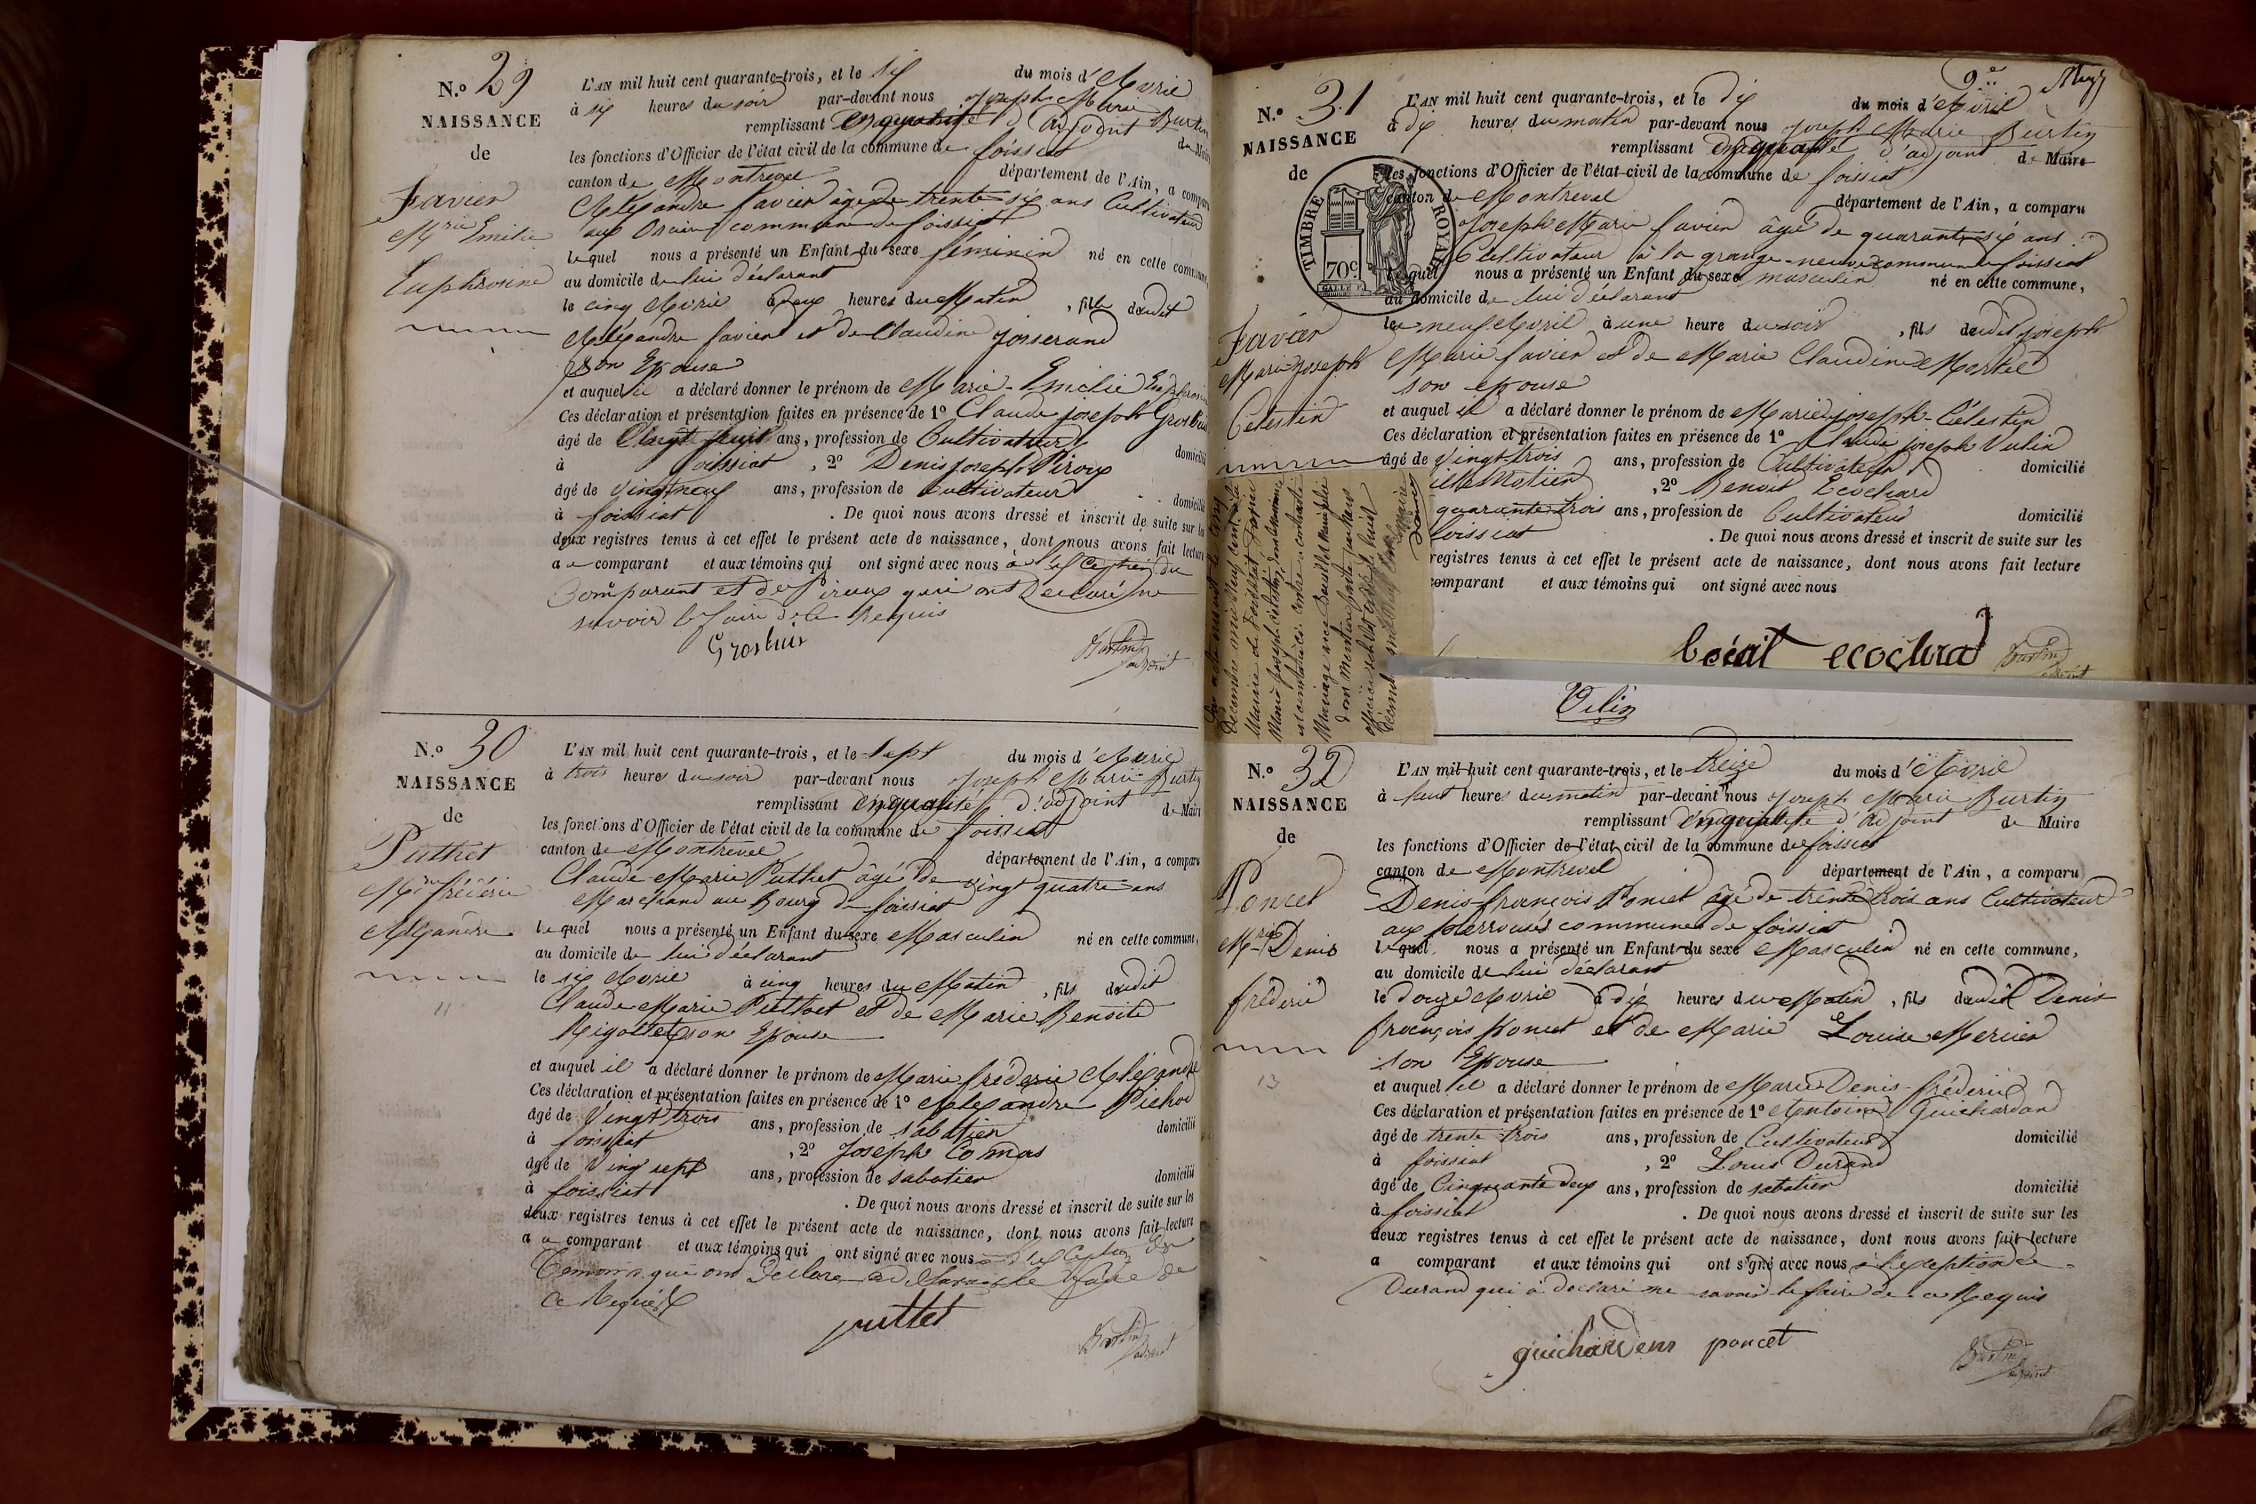 N.º 29
NAISSANCE
de
Favier
Mrie Emilie
Euphrosine
L'AN mil huit cent quarante-trois, et le six du mois d'Avril
à six heures du soir par-devant nous Joseph Marie Burtin
remplissant en qualité d'adjoint de Maire
les fonctions d'Officier de l'état civil de la commune de foissiat
canton de Montrevel département de l'Ain, a comparu
Alexandre favier âgé de trente six ans Cultivateur
aux commune de foissiat
lequel nous a présenté un Enfant du sexe féminin né en cette commune,
au domicile de lui déclarant
le cinq Avril à deux heures du Matin, fille dudit
Alexandre favier et de Claudine Josserand
son Epouse
et auquel il a déclaré donner le prénom de Marie-Emilie Euphrosine
Ces déclaration et présentation faites en présence de 1º Claude joseph Grosbuis
âgé de Vingt huit ans, profession de Cultivateur domicilié
à foissiat, 2º Denis joseph Piroux
âgé de vingt neuf ans, profession de Cultivateur domicilié
à foissiat. De quoi nous avons dressé et inscrit de suite sur les
deux registres tenus à cet effet le présent acte de naissance, dont nous avons fait lecture
au comparant et aux témoins qui ont signé avec nous à l'exception du
Comparant et de Piroux qui ont Déclaré ne
savoir le faire de ce Requis
Grosbuis
Burtin
adjoint
N.º 30
NAISSANCE
de
Puthet
Mrie frédéric
Alexandre
L'AN mil huit cent quarante-trois, et le sept du mois d'Avril
à trois heures du soir par-devant nous Joseph Marie Burtin
remplissant en qualité d'adjoint de Maire
les fonctions d'Officier de l'état civil de la commune de foissiat
canton de Montrevel département de l'Ain, a comparu
Claude Marie Puthet âgé de vingt quatre ans
Marchand au Bourg de foissiat
lequel nous a présenté un Enfant du sexe Masculin né en cette commune,
au domicile de lui déclarant
le six Avril à cinq heures du Matin, fils dudit
Claude Marie Puthet et de Marie Benoite
Rigollet son Epouse
et auquel il a déclaré donner le prénom de Marie frédéric Alexandre
Ces déclaration et présentation faites en présence de 1º Alexandre Pichod
âgé de Vingt trois ans, profession de sabotier domicilié
à foissiat, 2º Joseph Comas
âgé de Vingt sept ans, profession de sabotier domicilié
à foissiat. De quoi nous avons dressé et inscrit de suite sur les
deux registres tenus à cet effet le présent acte de naissance, dont nous avons fait lecture
au comparant et aux témoins qui ont signé avec nous à l'exception des
Témoins qui ont Déclaré ne savoir le faire de
ce Requis
puttet
Burtin
adjoint
9e
N.º 31
NAISSANCE
de
TIMBRE ROYAL
70c
Favier
Marie Joseph
Célestin
L'AN mil huit cent quarante-trois, et le dix du mois d'Avril
à dix heures du matin par-devant nous Joseph Marie Burtin
remplissant en qualité d'adjoint de Maire
les fonctions d'Officier de l'état civil de la commune de foissiat
canton de Montrevel département de l'Ain, a comparu
Joseph Marie favier âgé de quarante six ans
Cultivateur à la grange-neuve commune de foissiat
lequel nous a présenté un Enfant du sexe masculin né en cette commune,
au domicile de lui déclarant
le neuf Avril à une heure du soir, fils dudit Joseph
Marie favier et de Marie Claudine Martel
son epouse
et auquel il a déclaré donner le prénom de Marie joseph-Célestin
Ces déclaration et présentation faites en présence de 1º Claude joseph Vulin
âgé de vingt-trois ans, profession de Cultivateur domicilié
, 2º Benoit Ecochard
quarante trois ans, profession de Cultivateur domicilié
foissiat. De quoi nous avons dressé et inscrit de suite sur les
registres tenus à cet effet le présent acte de naissance, dont nous avons fait lecture
comparant et aux témoins qui ont signé avec nous
ecochard
Burtin
Vilin
N.º 32
NAISSANCE
de
Poncet
Mrie Denis
frédéric
L'AN mil huit cent quarante-trois, et le treize du mois d'Avril
à huit heures du matin par-devant nous Joseph Marie Burtin
remplissant en qualité d'adjoint de Maire
les fonctions d'Officier de l'état civil de la commune de foissiat
canton de Montrevel département de l'Ain, a comparu
Denis françois Poncet âgé de trente trois ans Cultivateur
aux commune de foissiat
lequel nous a présenté un Enfant du sexe Masculin né en cette commune,
au domicile de lui déclarant
le douze Avril à dix heures du Matin, fils dudit Denis
françois Poncet et de Marie Louise Mercier
son Epouse
et auquel il a déclaré donner le prénom de Marie Denis-frédéric
Ces déclaration et présentation faites en présence de 1º Antoine Guichardan
âgé de trente trois ans, profession de Cultivateur domicilié
à foissiat, 2º Louis Durand
âgé de Cinquante deux ans, profession de sabotier domicilié
à foissiat. De quoi nous avons dressé et inscrit de suite sur les
deux registres tenus à cet effet le présent acte de naissance, dont nous avons fait lecture
a comparant et aux témoins qui ont signé avec nous à l'exception de
Durand qui a déclaré ne savoir le faire de ce Requis
guichardens poncet
Burtin
adjoint